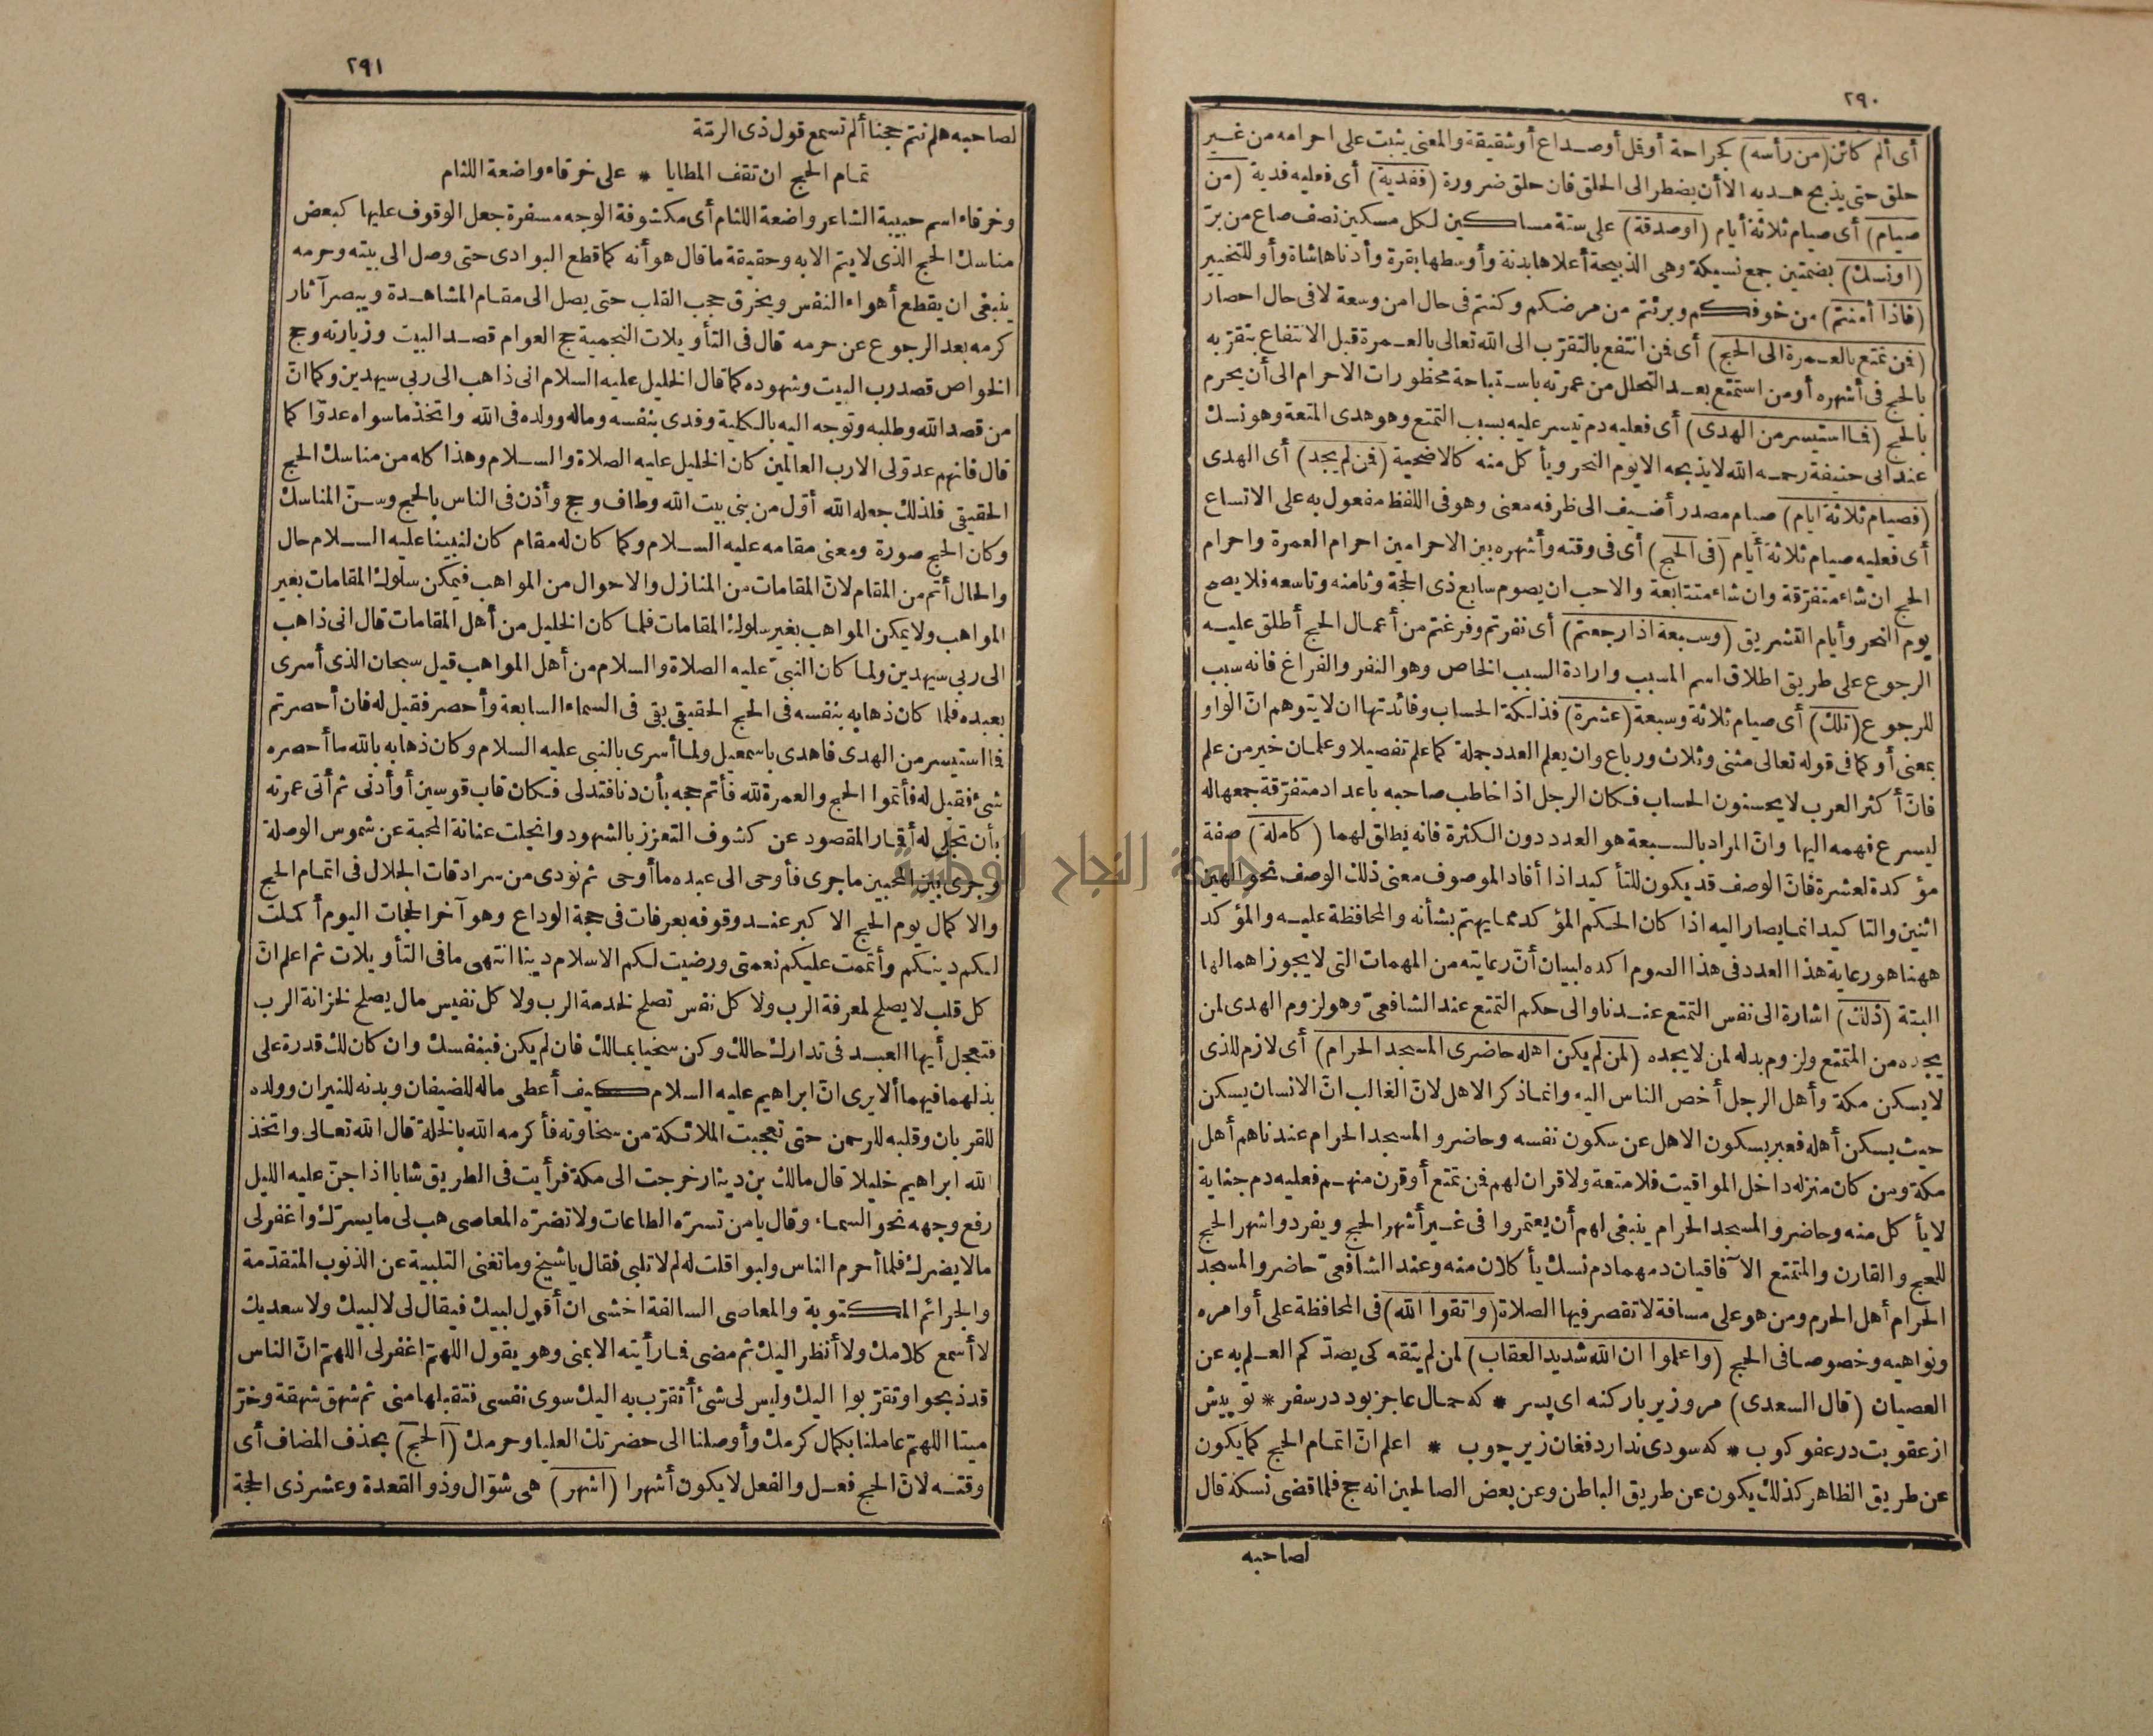 ٢٩٠
أى ألم كائن (من رأسه) كجراحة أوقمل أوصداع أوشقيقة والمعنى يثبت على احرامه من غير
حلق حتى يذبح هديه الا أن يضطر الى الحلق فان حلق ضرورة (ففدية) أى فعليه فدية (من
صيام) أى صيام ثلاثة أيام (اوصدقة) على ستة مساكين لكل مسكين نصف صاع من بر
(اونسك) بضمتين جمع نسيكة وهى الذبيحة أعلاها بدنة وأوسطها بقرة وأدناها شاة وأو للتخيير
(فاذا أمنتم) من خوفكم وبرئتم من مرضكم وكنتم فى حال امن وسعة لا فى حال احصار
(فمن تمتع بالعمرة الى الحج) أى فمن انتفع بالتقرّب الى الله تعالى بالعمرة قبل الانتفاع بتقرّبه
بالحج فى أشهره أومن استمتع بعد التحلل من عمرته باستباحة محظورات الاحرام الى أن يحرم
بالحج (فما استيسر من الهدى) أى فعليه دم تيسر عليه بسبب التمتع وهو هدى المتعة وهو نسك
عند ابى حنيفة رحمه الله لا يذبحه الا يوم النحر ويأ كل منه كالاضحية (فمن لم يجد) أى الهدى
(فصيام ثلاثة ايام) صيام مصدر أضيف الى ظرفه معنى وهو فى اللفظ مفعول به على الاتساع
أى فعليه صيام ثلاثة أيام (فى الحج) أى فى وقته وأشهره بين الاحرامين احرام العمرة واحرام
الحج ان شاء متفرّقة وان شاء متتابعة والاحب ان يصوم سابع ذى الحجة وثامنه وتاسعه فلا يصح
يوم النحر وأيام التشريق (وسبعة اذا رجعتم) أى نفرتم وفرغتم من أعمال الحج أطلق عليه
الرجوع على طريق اطلاق اسم المسبب وارادة السبب الخاص وهو النفر والفراغ فانه سبب
للرجوع (تلك) أى صيام ثلاثة وسبعة (عشرة) فذلكة الحساب وفائدتها ان لا يتوهم انّ الواو
بمعنى أو كما فى قوله تعالى مثنى وثلاث ورباع وان يعلم العدد جملة كما علم تفصيلا وعلمان خير من علم
فانّ أكثر العرب لا يحسنون الحساب فكان الرجل اذا خاطب صاحبه باعداد متفرّقة جمعها له
ليسرع فهمه اليها وانّ المراد بالسبعة هو العدد دون الكثرة فانه يطلق لهما (كاملة) صفة
مؤكدة لعشرة فانّ الوصف قد يكون للتأكيد اذا أفاد الموصوف معنى ذلك الوصف نحو الهين
اثنين والتاكيد انما يصار اليه اذا كان الحكم المؤكد مما يهتم بشأنه والمحافظة عليه والمؤكد
ههنا هو رعاية هذا العدد فى هذا الصوم اكده لبيان أنّ رعايته من المهمات التى لا يجوز اهمالها
البتة (ذلك) اشارة الى نفس التمتع عندنا والى حكم التمتع عند الشافعىّ وهو لزوم الهدى لمن
يجده من المتمتع ولزوم بدله لمن لا يجده (لمن لم يكن اهله حاضرى المسجد الحرام) أى لازم للذى
لا يسكن مكة وأهل الرجل أخص الناس اليه وانما ذكر الاهل لانّ الغالب انّ الانسان يسكن
حيث يسكن أهله فعبر بسكون الاهل عن سكون نفسه وحاضرو المسجد الحرام عندنا هم أهل
مكة ومن كان منزله داخل المواقيت فلا متعة ولا قران لهم فمن تمتع أو قرن منهم فعليه دم جناية
لا يأ كل منه وحاضرو المسجد الحرام ينبغى لهم أن يعتمروا فى غير أشهر الحج ويفردوا شهر الحج
للحج والقارن والمتمتع الآفاقيان دمهما دم نسك يأ كلان منه وعند الشافعىّ حاضرو المسجد
الحرام أهل الحرم ومن هو على مسافة لا تقصر فيها الصلاة (واتقوا الله) فى المحافظة على أوامره
ونواهيه وخصوصا فى الحج (واعلموا ان الله شديد العقاب) لمن لم يتقه كى يصدّكم العلم به عن
العصيان (قال السعدى) مرو زير بار كنه اى پسر * كه حمال عاجز بود در سفر * تو پيش
از عقوبت در عفو كوب * كه سودى ندارد فغان زير چوب * اعلم انّ اتمام الحج كما يكون
عن طريق الظاهر كذلك يكون عن طريق الباطن وعن بعض الصالحين انه حج فلما قضى نسكه قال
لصاحبه
٢٩١
لصاحبه هلم نتم حجنا ألم تسمع قول ذى الرمّة
تمام الحج ان تقف المطايا * على خرقاء واضعة اللثام
وخرقاء اسم حبيبة الشاعر واضعة اللثام أى مكشوفة الوجه مسفرة جعل الوقوف عليها كبعض
مناسك الحج الذى لا يتم الا به وحقيقة ما قال هو أنه كما قطع البوادى حتى وصل الى بيته وحرمه
ينبغى ان يقطع أهواء النفس ويخرق حجب القلب حتى يصل الى مقام المشاهدة ويبصر آثار
كرمه بعد الرجوع عن حرمه قال فى التأويلات النجمية حج العوام قصد البيت وزيارته وحج
الخواص قصد رب البيت وشهوده كما قال الخليل عليه السلام انى ذاهب الى ربى سيهدين وكما انّ
من قصد الله وطلبه وتوجه اليه بالكلية وفدى بنفسه وماله وولده فى الله واتخذ ما سواه عدوّا كما
قال فانهم عدوّ لى الا رب العالمين كان الخليل عليه الصلاة والسلام وهذا كله من مناسك الحج
الحقيقى فلذلك جعله الله أوّل من بنى بيت الله وطاف وحج وأذن فى الناس بالحج وسنّ المناسك
وكان الحج صورة ومعنى مقامه عليه السلام وكما كان له مقام كان لنبينا عليه السلام حال
والحال أتم من المقام لانّ المقامات من المنازل والاحوال من المواهب فيمكن سلوك المقامات بغير
المواهب ولا يمكن المواهب بغير سلوك المقامات فلما كان الخليل من أهل المقامات قال انى ذاهب
الى ربى سيهدين ولما كان النبىّ عليه الصلاة والسلام من أهل المواهب قيل سبحان الذى أسرى
بعبده فلما كان ذهابه بنفسه فى الحج الحقيقى بقى فى السماء السابعة وأحصر فقيل له فان أحصرتم
فما استيسر من الهدى فاهدى باسمعيل ولما أسرى بالنبى عليه السلام وكان ذهابه بالله ما أحصره
شئ فقيل له فأتموا الحج والعمرة لله فأتم حجه بأن دنا فتدلى فكان قاب قوسين أو أدنى ثم أتى عمرته
بأن تجلى له أقمار المقصود عن كشوف التعزز بالشهود وانجلت عنانة المحبة عن شموس الوصلة
وجرى بين المحبين ما جرى فأوحى الى عبده ما أوحى ثم نودى من سرادقات الجلال فى اتمام الحج
والاكمال يوم الحج الاكبر عند وقوفه بعرفات فى حجة الوداع وهو آخر الحجات اليوم أكملت
لكم دينكم وأتممت عليكم نعمتى ورضيت لكم الاسلام دينا انتهى ما فى التأويلات ثم اعلم انّ
كل قلب لا يصلح لمعرفة الرب ولا كل نفس تصلح لخدمة الرب ولا كل نفيس مال يصلح لخزانة الرب
فتعجل أيها العبد فى تدارك حالك وكن سخيا بمالك فان لم يكن فبنفسك وان كان لك قدرة على
بذلهما فبهما ألا يرى انّ ابراهيم عليه السلام كيف أعطى ماله للضيفان وبدنه للنيران وولده
للقربان وقلبه للرحمن حتى تعجبت الملائكة من سخاوته فأكرمه الله بالخلة قال الله تعالى واتخذ
الله ابراهيم خليلا قال مالك بن دينار خرجت الى مكة فرأيت فى الطريق شابا اذا جنّ عليه الليل
رفع وجهه نحو السماء وقال يا من تسرّه الطاعات ولا تضرّه المعاصى هب لى ما يسرّك واغفر لى
ما لا يضرك فلما أحرم الناس ولبوا قلت له لم لا تلبى فقال يا شيخ وما تغنى التلبية عن الذنوب المتقدّمة
والجرائم المكتوبة والمعاصى السالفة اخشى ان أقول لبيك فيقال لى لا لبيك ولا سعديك
لا أسمع كلامك ولا أنظر اليك ثم مضى فما رأيته الا بمنى وهو يقول اللهمّ اغفر لى اللهمّ انّ الناس
قد ذبحوا وتقرّبوا اليك وليس لى شئ أتقرّب به اليك سوى نفسى فتقبلها منى ثم شهق شهقة وخرّ
ميتا اللهمّ عاملنا بكمال كرمك وأوصلنا الى حضرتك العليا وحرمك (الحج) بحذف المضاف أى
وقته لانّ الحج فعل والفعل لا يكون أشهرا (اشهر) هى شوّال وذو القعدة وعشر ذى الحجة
جامعة النجاح الوطنية